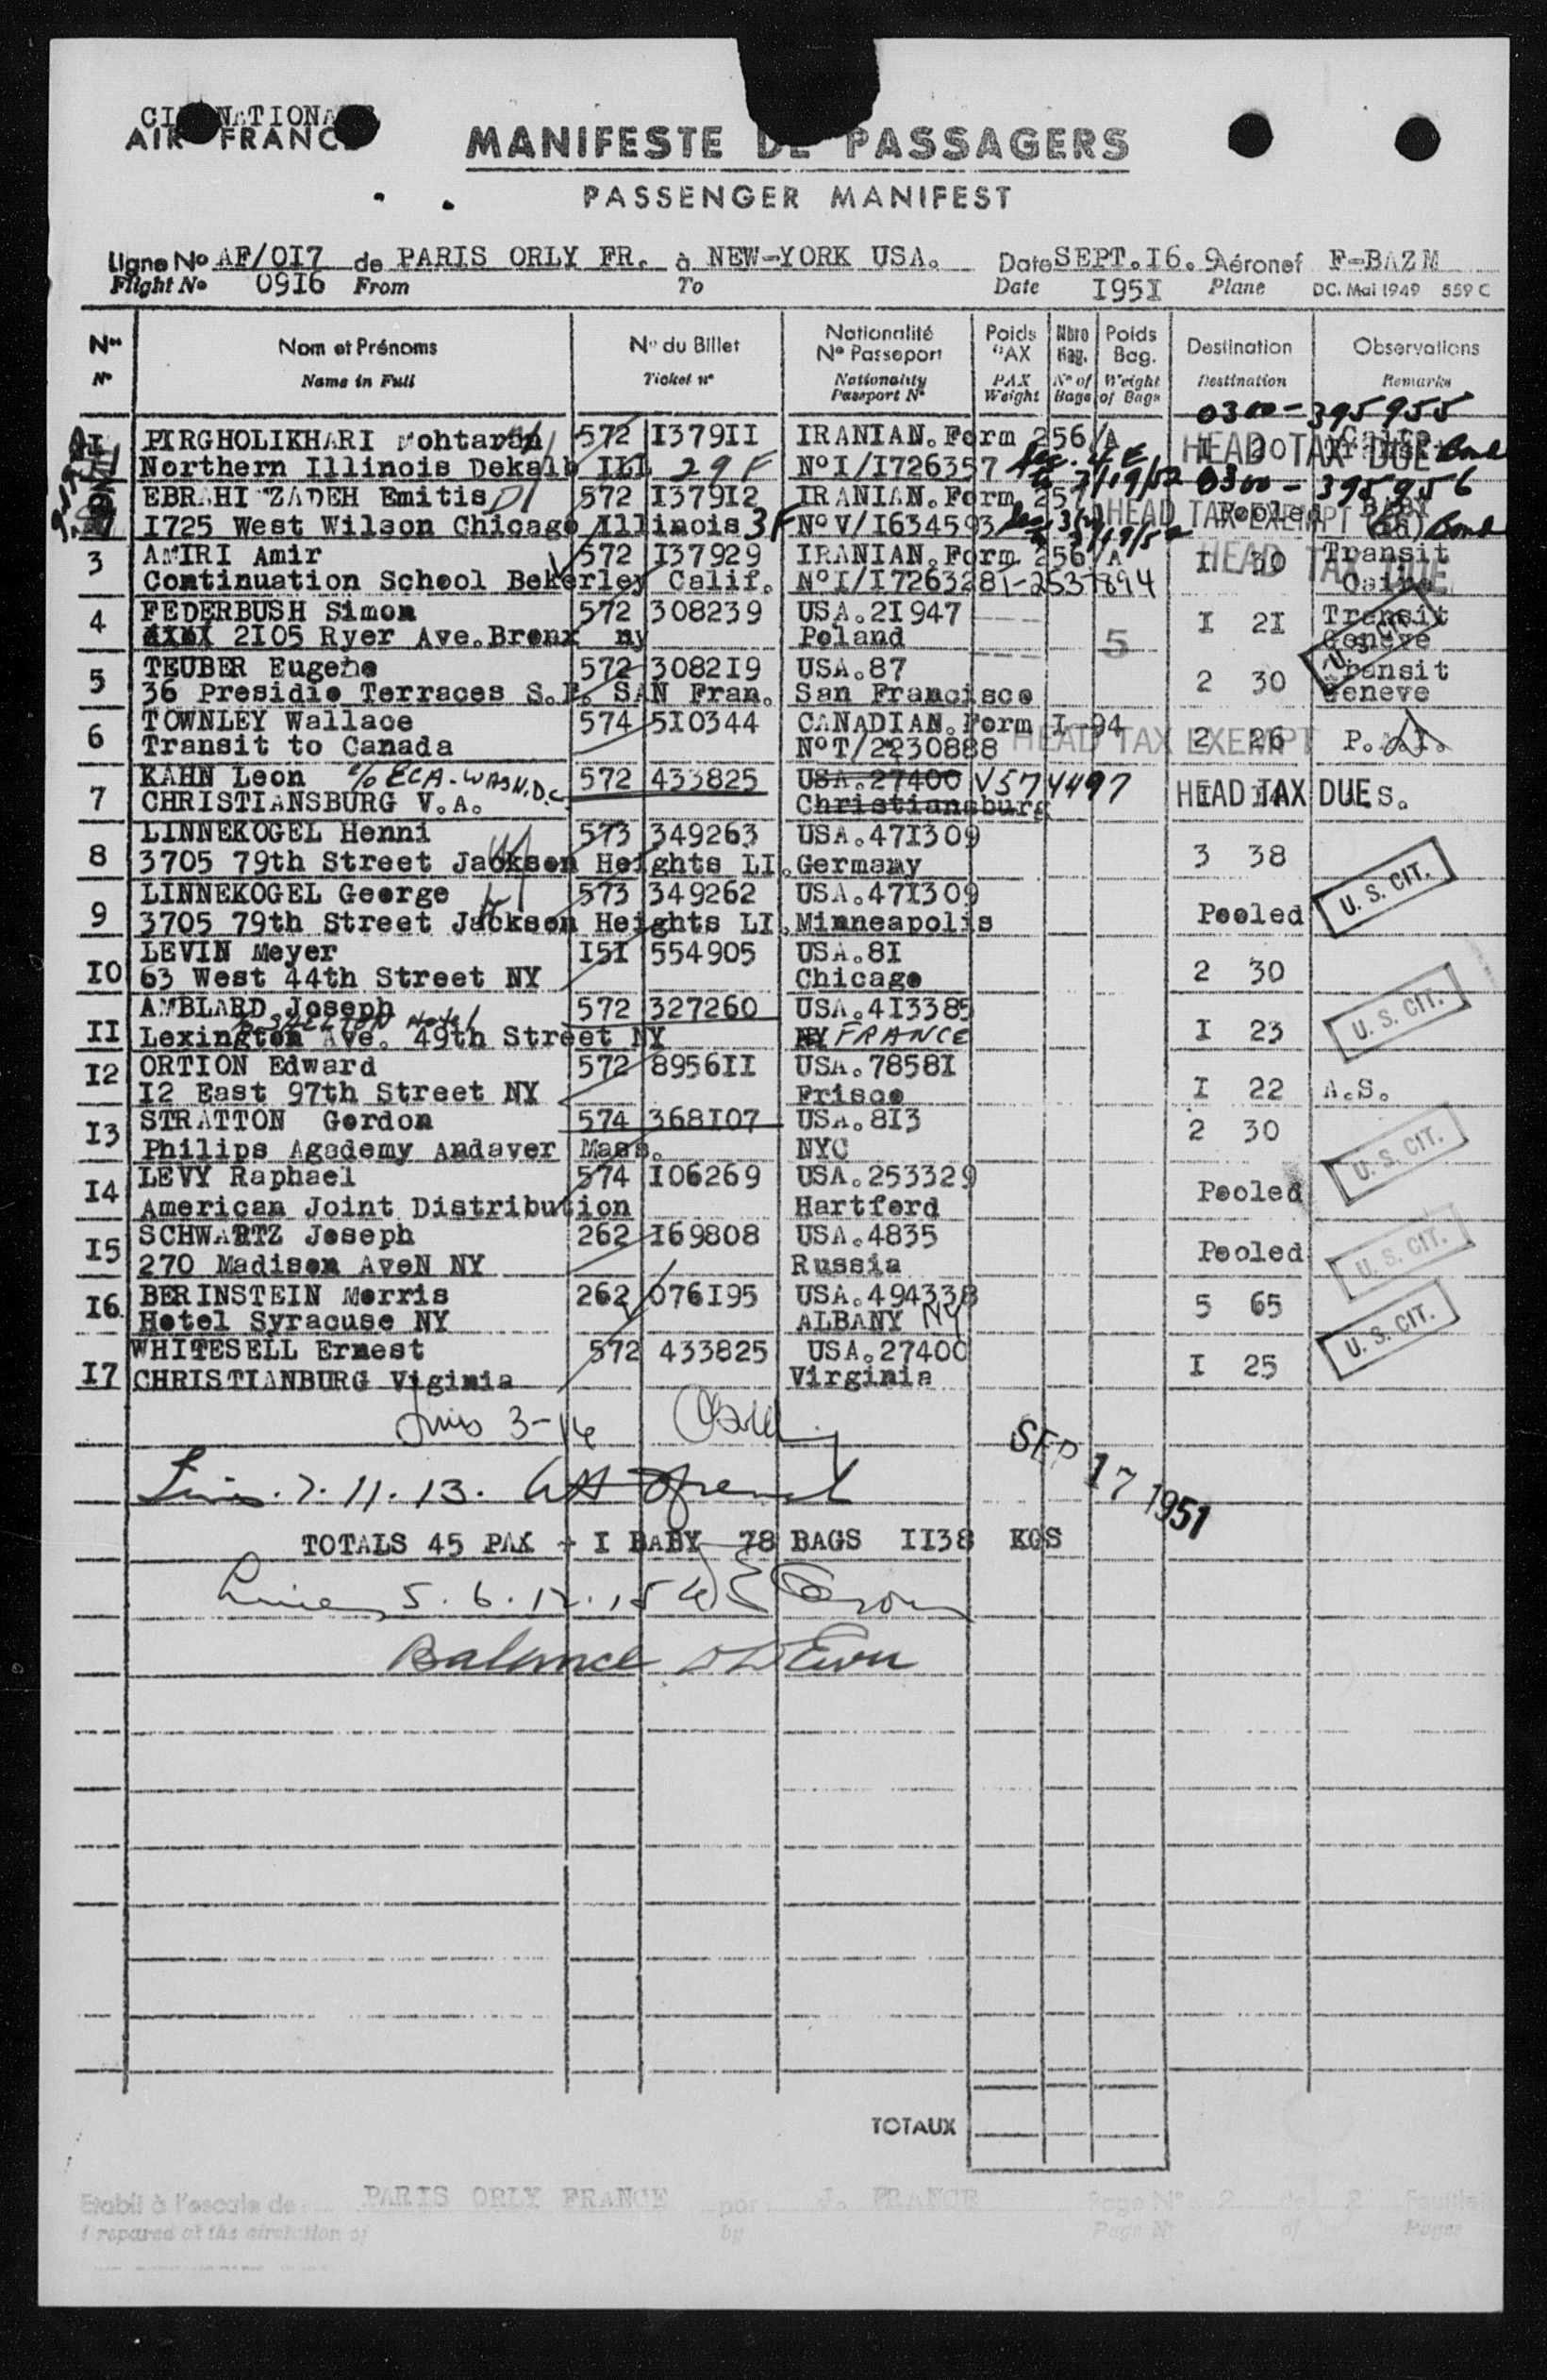 CIE NATIONALE
AIR FRANCE
MANIFESTE DE PASSAGERS
PASSENGER MANIFEST
Ligne No AF/OI7 de PARIS ORLY FR. à NEW-YORK USA. Date SEPT.I6. 9 Aéronef F-BAZM
Flight No 09I6 From To Date I95I Plane DC. Mai 1949 559 C
Nos Nom et Prénoms No du Billet Nationalité No Passeport Poids PAX Nbre Bag. Poids Bag. Destination Observations
No Name in Full Ticket no Nationality Passport No PAX Weight No of Bags Weight of Bags Destination Remarks
0300-395955
PIRGHOLIKHARI Mohtaram 572 I379II IRANIAN.Form 256/A HEAD TAX DUE Bond
Northern Illinois Dekalb ILL 29 F NoI/I726357 3/19/52 0300-395956
EBRAHI ZADEH Emitis 572 I379I2 IRANIAN.Form 257 Pooled BABY
I725 West Wilson Chicago Illinois 3F NoV/I634593 HEAD TAX EXEMPT Bond
3 AMIRI Amir 572 I37929 IRANIAN.Form 256/A I 30 Transit
Continuation School Bekerley Calif. NoI/I726328 1-2537894 HEAD TAX DUE Caire
4 FEDERBUSH Simon 572 308239 USA.2I947 I 2I Transit
2I05 Ryer Ave.Bronx ny Poland 5 Geneve
5 TEUBER Eugene 572 3082I9 USA.87 2 30 Transit
36 Presidio Terraces S.F. SAN Fran. San Francisco Geneve
6 TOWNLEY Wallace 574 5I0344 CANADIAN.Form I-94 2 26
Transit to Canada NoT/2230888 HEAD TAX EXEMPT
7 KAHN Leon c/o ECA-WASH.D.C. 572 433825 USA.27400 V574497
CHRISTIANSBURG V.A. Christiansburg HEAD TAX DUE S.
8 LINNEKOGEL Henni 573 349263 USA.47I309 3 38
3705 79th Street Jackson Heights LI. Germany
9 LINNEKOGEL George 573 349262 USA.47I309 Pooled U. S. CIT.
3705 79th Street Jackson Heights LI. Minneapolis
IO LEVIN Meyer I5I 554905 USA.8I 2 30
63 West 44th Street NY Chicago
II AMBLARD Joseph 572 327260 USA.4I3385 I 23 U. S. CIT.
SHELTON Hotel
Lexington Ave. 49th Street NY FRANCE
I2 ORTION Edward 572 8956II USA.7858I I 22 A.S.
I2 East 97th Street NY Frisco
I3 STRATTON Gordon 574 368I07 USA.8I3 2 30
Philips Agademy Andaver Mass. NYC U. S. CIT.
I4 LEVY Raphael 574 I06269 USA.253329 Pooled
American Joint Distribution Hartford
I5 SCHWARTZ Joseph 262 I69808 USA.4835 Pooled U. S. CIT.
270 Madison AveN NY Russia
I6 BERINSTEIN Morris 262 076I95 USA.494338 5 65
Hotel Syracuse NY ALBANY NY U. S. CIT.
I7 WHITESELL Ernest 572 433825 USA.27400 I 25
CHRISTIANBURG Viginia Virginia
3-14
SEP 17 1951
7. 11. 13.
TOTALS 45 PAX + I BABY 78 BAGS II38 KGS
5. 6. 12. 15
Balance
TOTAUX
Etabli à l'escale de PARIS ORLY FRANCE par J. FRANCE Page No 2 de 2 Feuilles
Prepared at the airstation of by Page No of Pages